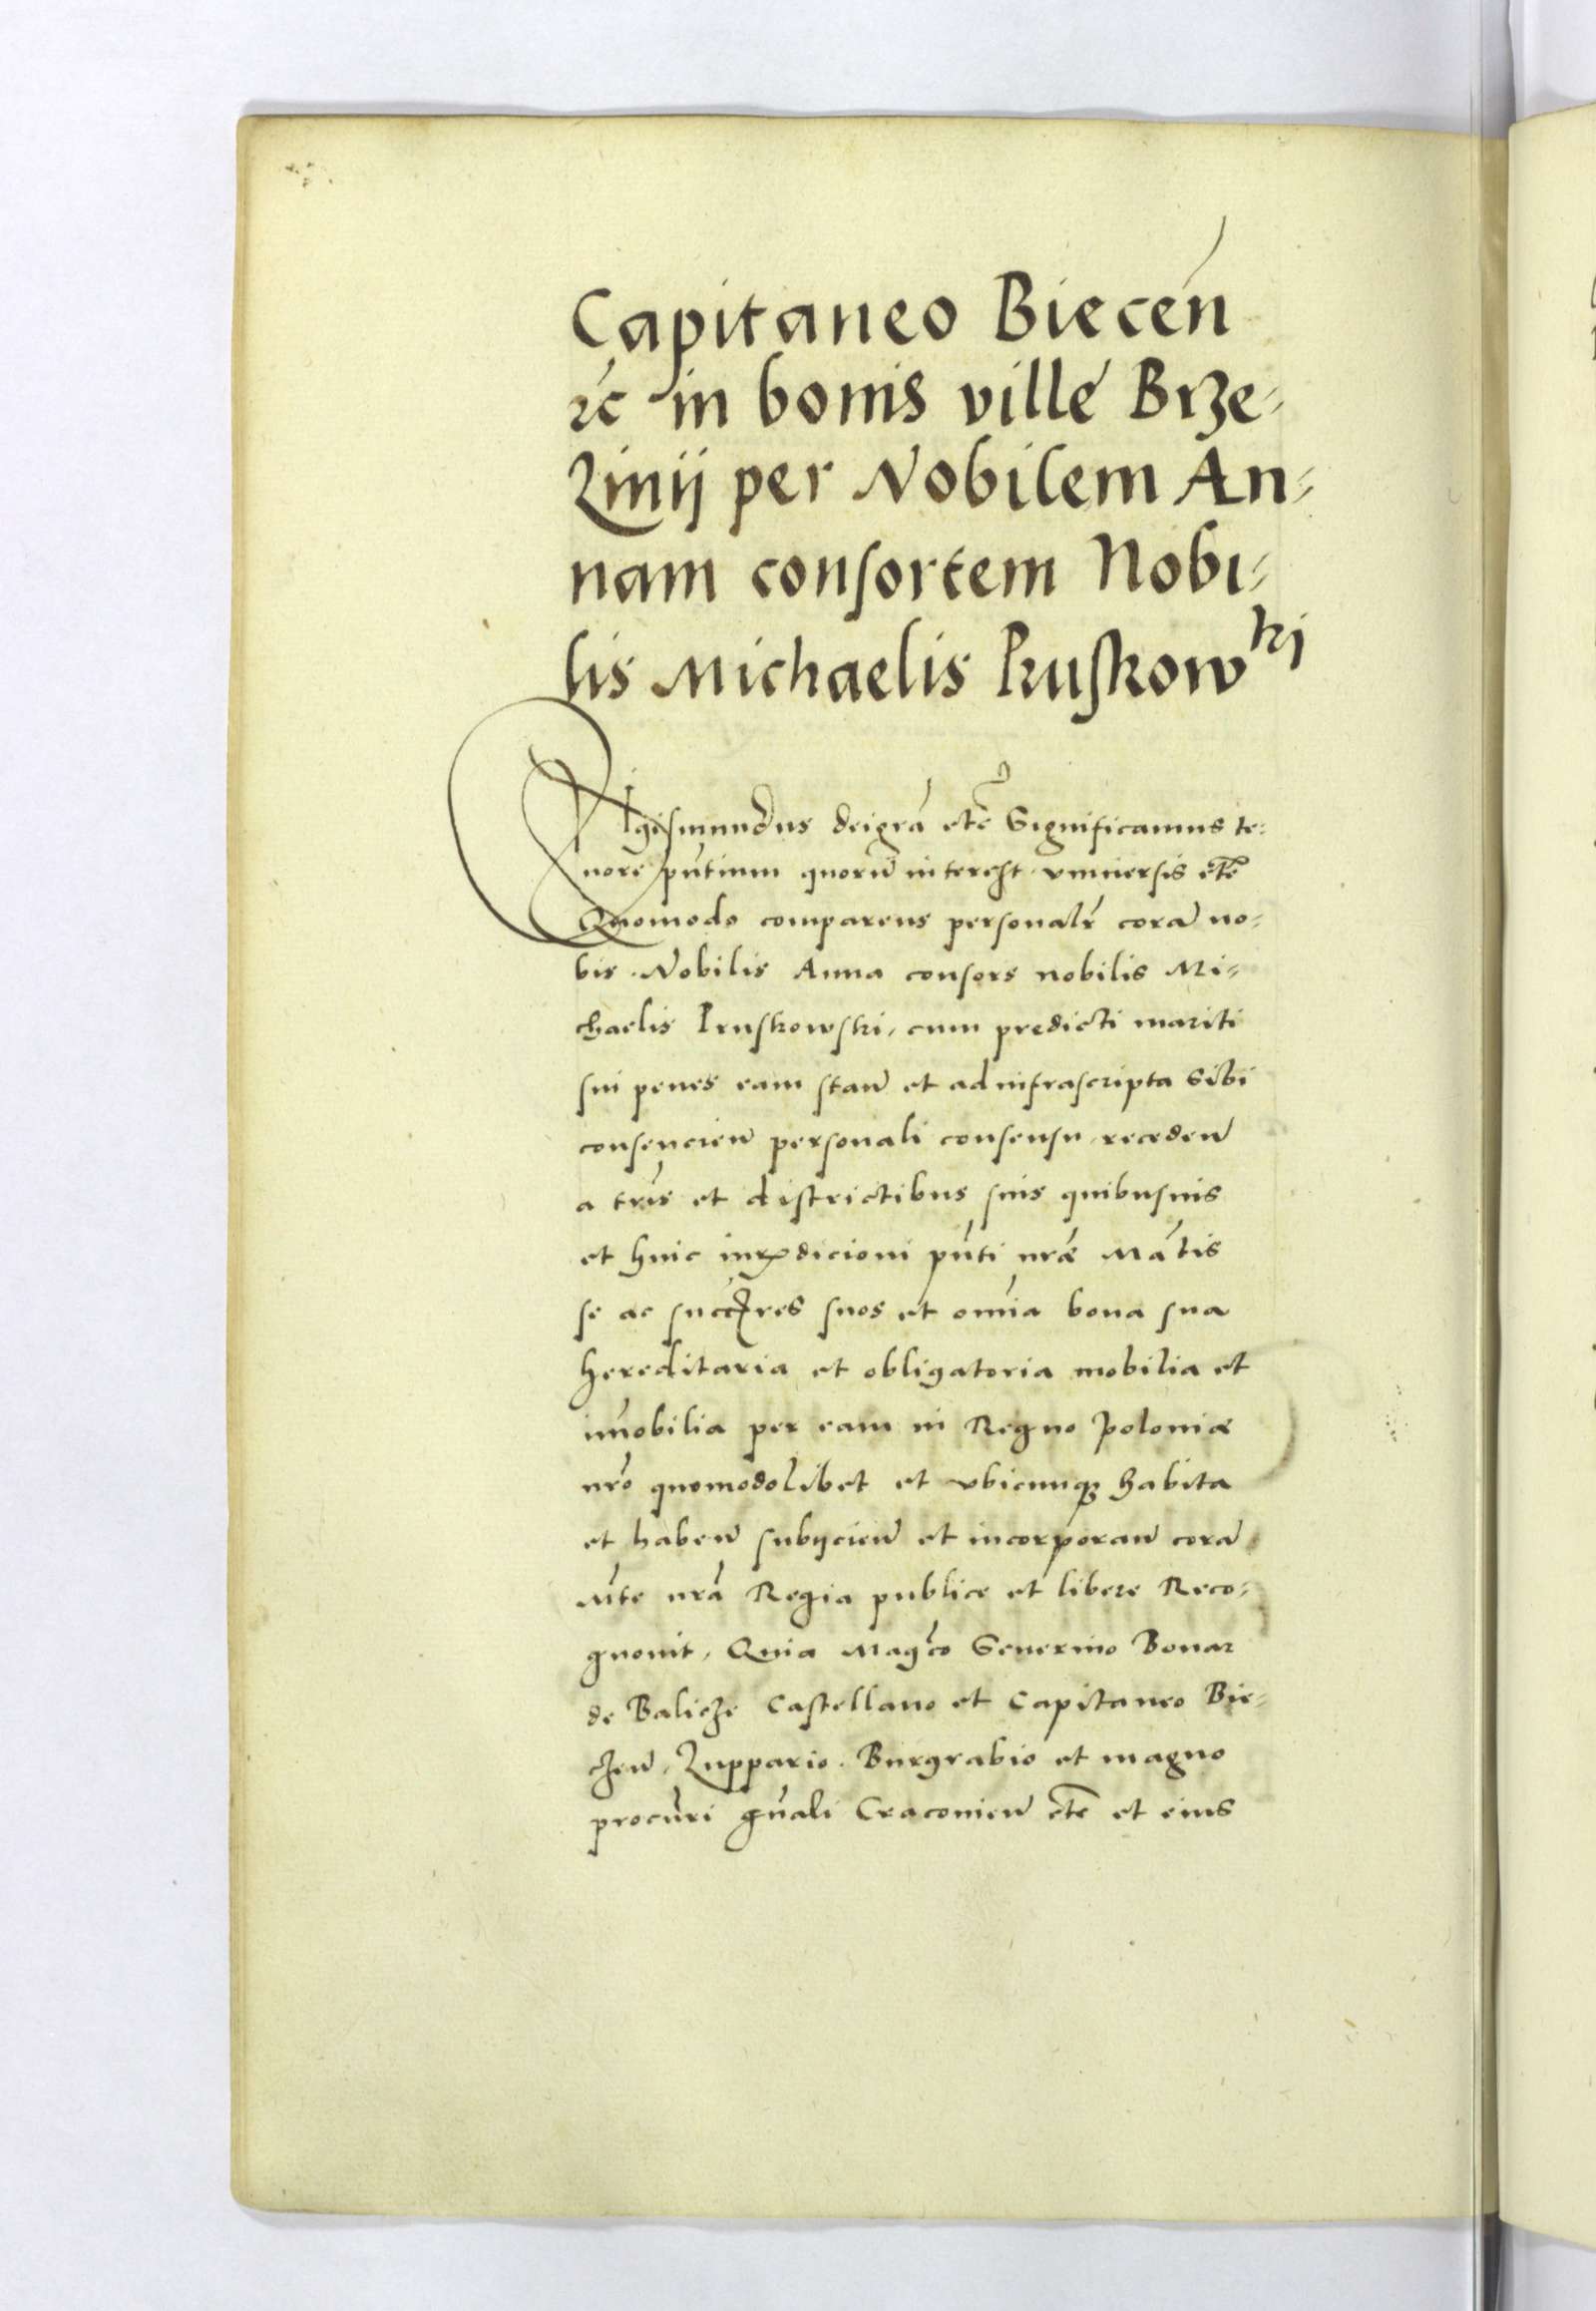 Capitaneo Biecen̄
ꝛc̄ in bonis ville Brze-
zinij per Nobilem An-
nam consortem Nobi-
lis Michaelis Pruskowski
Sigismundus dei gr̄a etc̄ Significamus te-
nore pn̄tium quorū interest vniuersis etc̄
Quomodo comparens personalr̄ corā no-
bis. Nobilis Anna consors nobilis Mi-
chaelis Pruskowski, cum predicti mariti
sui penes eam stan̄ et ad infrascripta sibi
consencien̄ personali consensu receden̄
a tr̄is et districtibus suis quibusuis
et huic inr̄dicioni pn̄ti nr̄æ Mātis
se ac succr̄es suos et om̄ia bona sua
hereditaria et obligatoria mobilia et
im̄obilia per eam in Regno Poloniæ
nr̄o quomodolibet et vbicunqꝫ habita
et haben̄ subijcien̄ et incorporan̄ corā
Mt̄e nr̄a Regia publice et libere Reco-
gnouit, Quia Magc̄o Seuerino Bonar
de Balicze Castellano et Capitaneo Bie-
czen̄, Zuppario. Burgrabio et magno
procur̄i gn̄ali Cracouien̄ etc̄ et eius